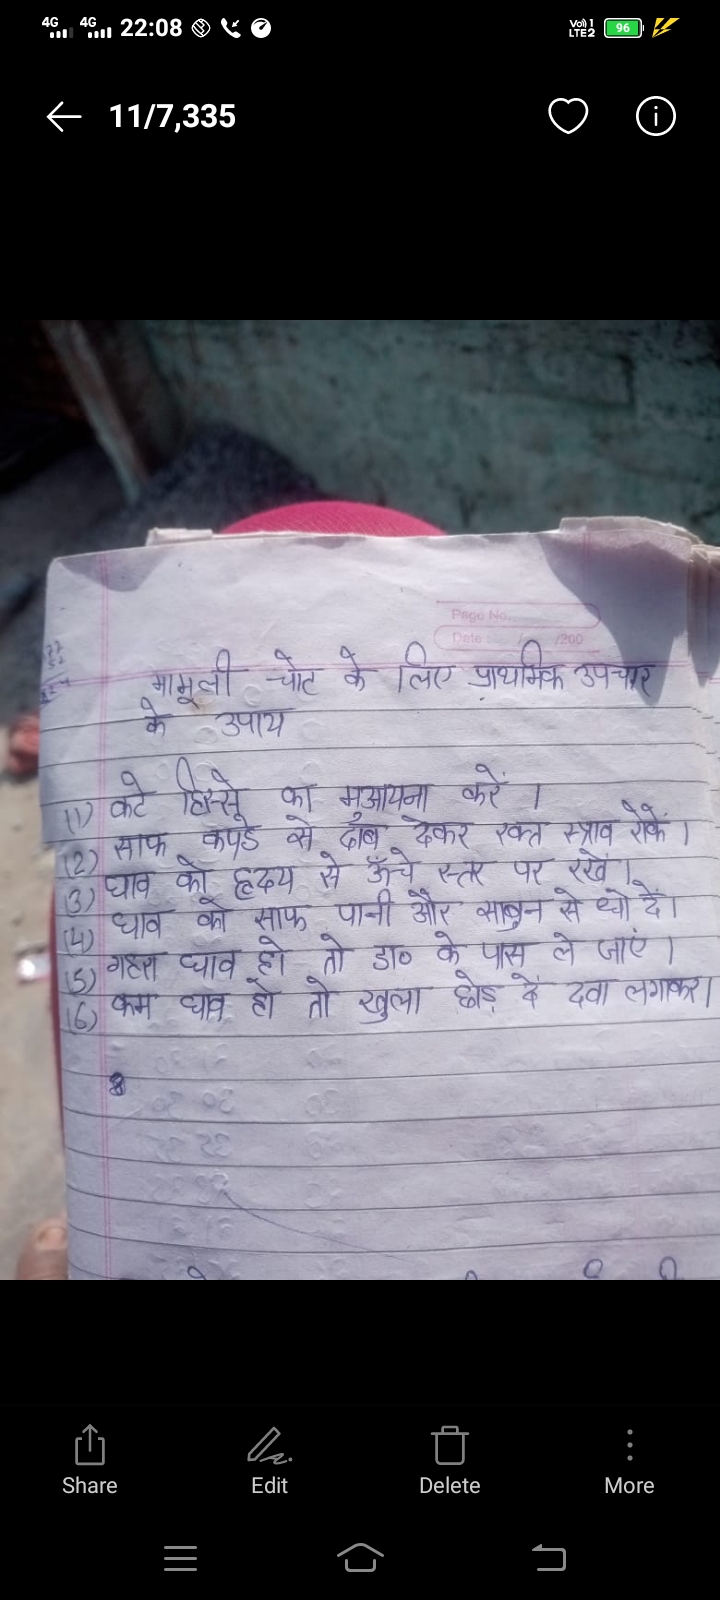 4G 4G 22:08 Vo)) 1 LTE2 96
11/7,335
Page No.
Date : / /200
मामूली चोट के लिए प्राथमिक उपचार
के उपाय
(1) कटे हिस्से का मुआयना करें ।
(2) साफ कपडे से दाब देकर रक्त स्त्राव रोकें ।
(3) घाव को हृदय से ऊँचे स्तर पर रखें ।
(4) घाव को साफ पानी और साबुन से धो दें ।
(5) गहरा घाव हो तो डा० के पास ले जाएं ।
(6) कम घाव हो तो खुला छोड़ दें दवा लगाकर ।
Share Edit Delete More